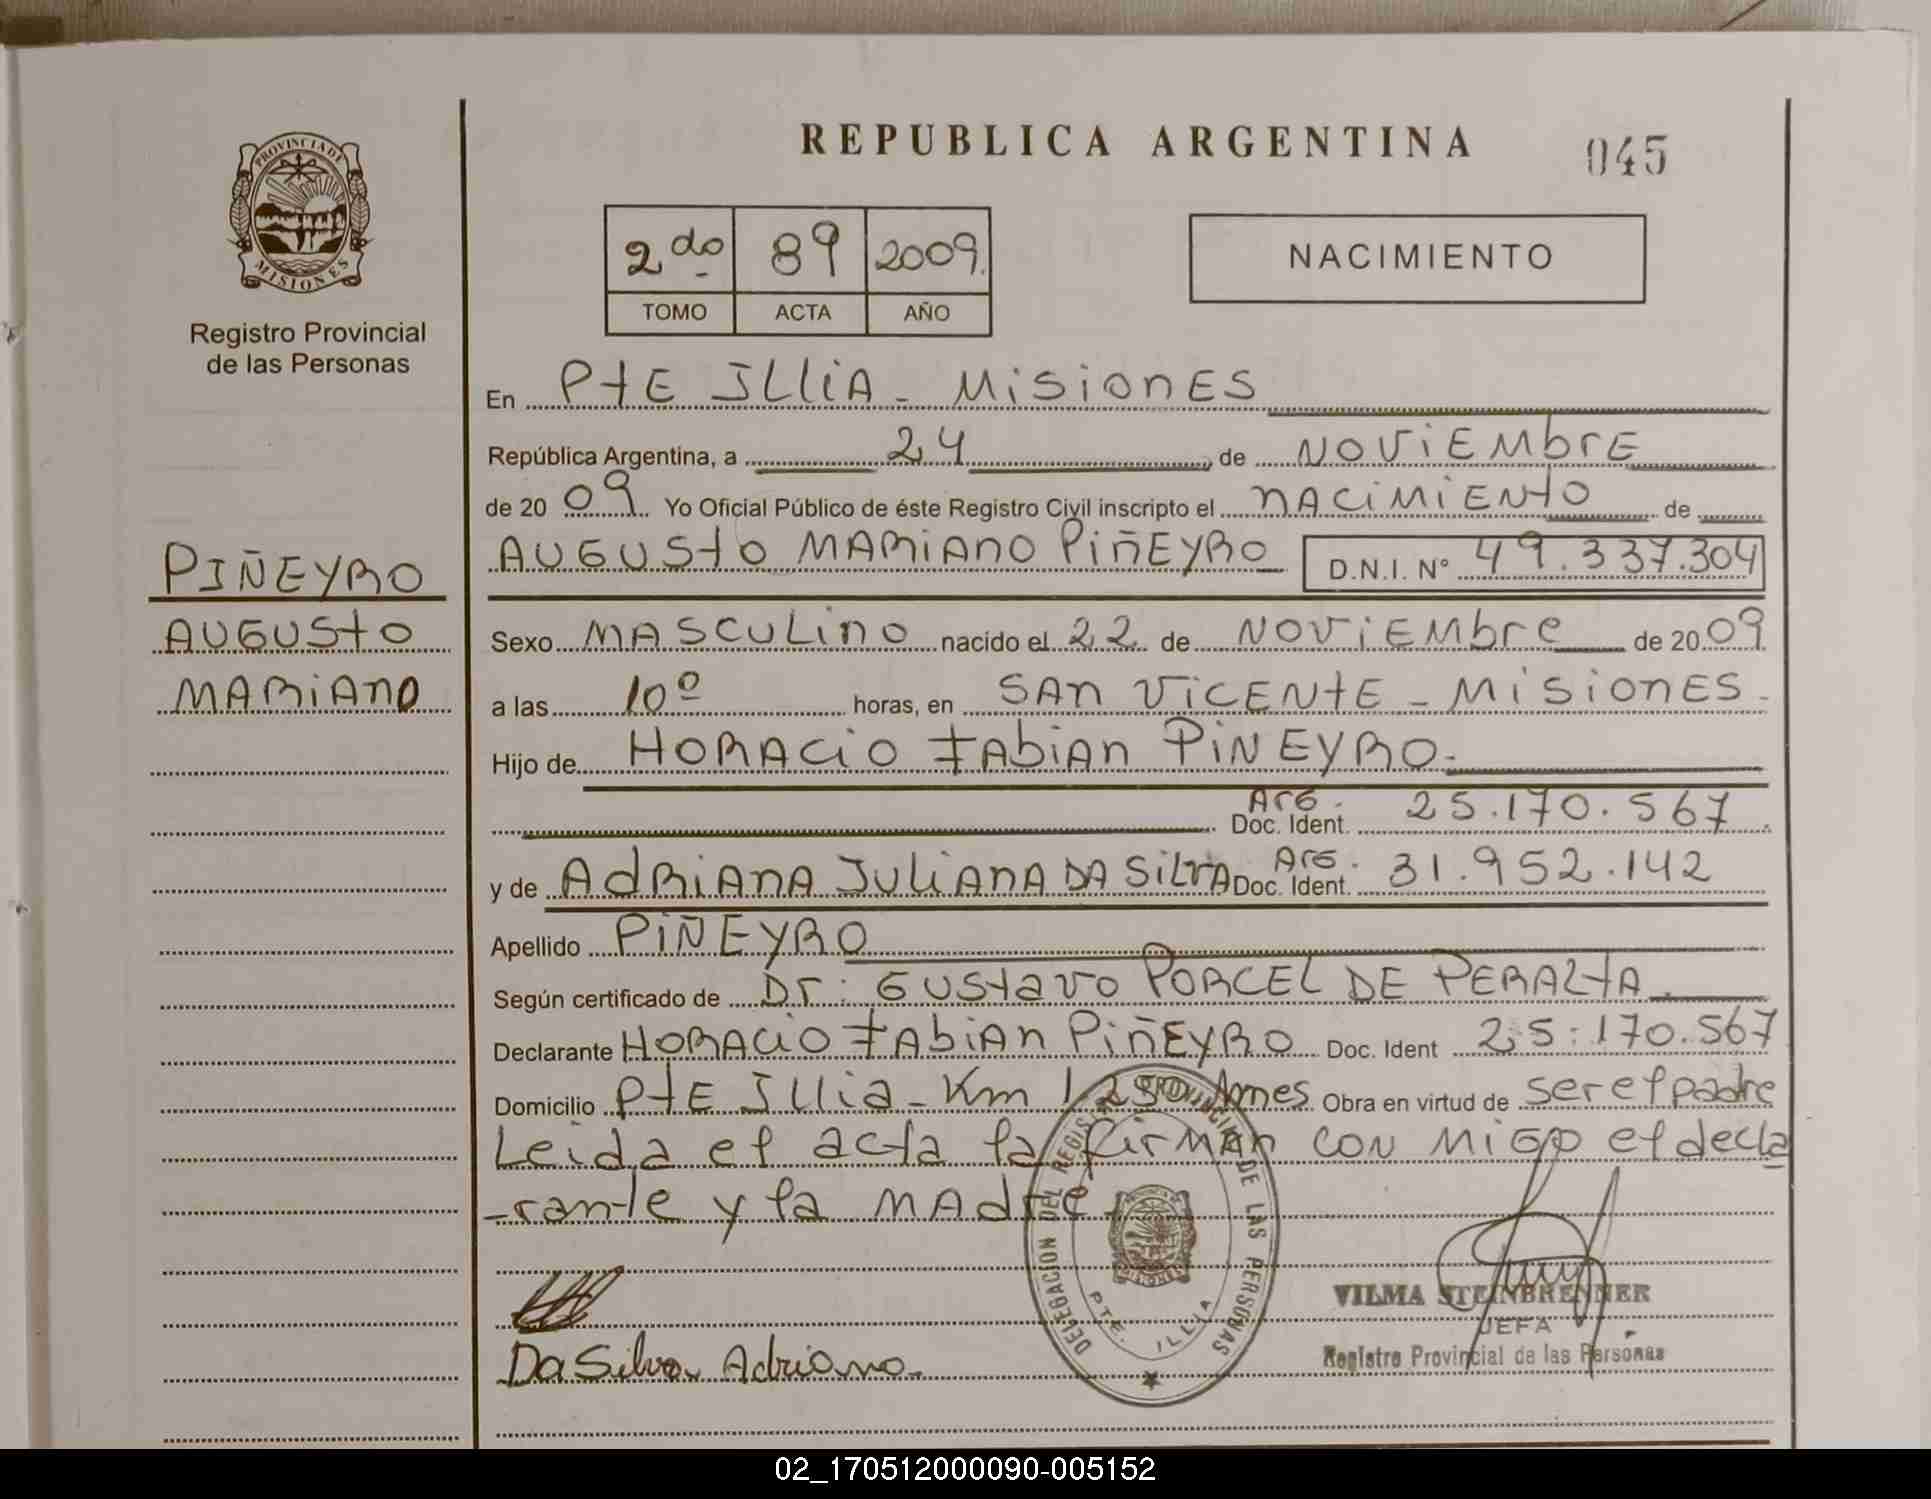 PROVINCIA DE
MISIONES
Registro Provincial
de las Personas
PIÑEYRO
AUGUSTO
MARIANO
REPUBLICA ARGENTINA
045
2do 89 2009.
TOMO ACTA AÑO
NACIMIENTO
En Pte Illia - Misiones
República Argentina, a 24 de Noviembre
de 2009 Yo Oficial Público de éste Registro Civil inscripto el nacimiento de
Augusto Mariano Piñeyro D.N.I. N° 49.337.304
Sexo Masculino nacido el 22 de Noviembre de 2009
a las 10º horas, en San Vicente - Misiones.
Hijo de Horacio Fabian Piñeyro.
Arg.
Doc. Ident. 25.170.567
y de Adriana Juliana Da Silva Arg. Doc. Ident. 31.952.142
Apellido Piñeyro
Según certificado de Dr: Gustavo Porcel De Peralta.
Declarante Horacio Fabian Piñeyro Doc. Ident 25.170.567
Domicilio Pte Illia - Km 1.250 Obra en virtud de ser el padre
Leida el acta la firman con migo el decla
-rante y la madre.
DELEGACION DEL REGISTRO PROVINCIAL DE LAS PERSONAS
PTE. ILLIA
Da Silva Adriana.
VILMA STEINBRENNER
JEFA
Registro Provincial de las Personas
02_170512000090-005152